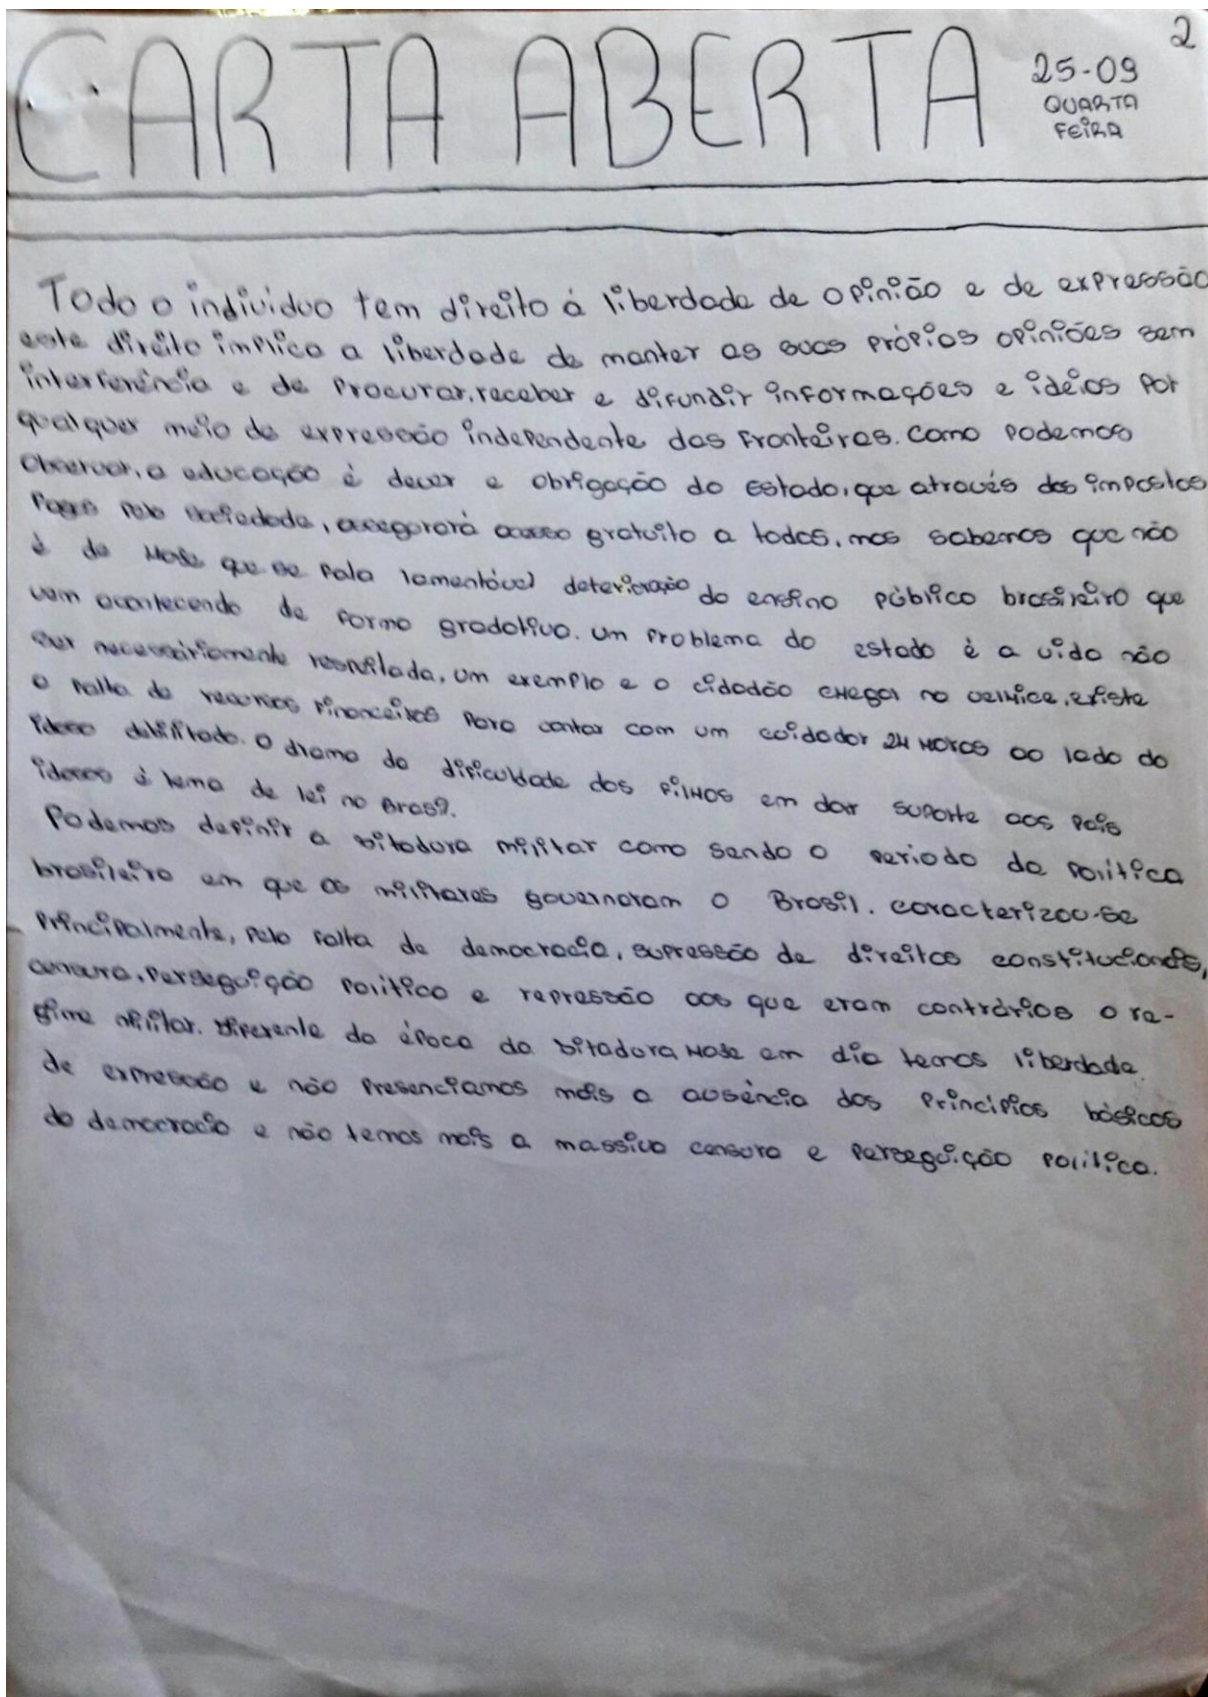 2
CARTA ABERTA
25-09
QUARTA
FEIRA
Todo o individuo tem direito á liberdade de opinião e de expressão
este direito implica a liberdade de manter as suas própias opiniões sem
interferência e de procurar, receber e difundir informações e idéias por
qualquer meio de expressão independente das fronteiras. Como podemos
observar, a educação é dever e obrigação do estado, que através dos impostos
pagos pela sociedade, assegurará acesso gratuito a todos, mas sabemos que não
é de hoje que se fala lamentável deterioração do ensino público brasileiro que
vem acontecendo de forma gradativa. um problema do estado é a vida não
ser necessáriamente respeitada, um exemplo e o cidadão chegar na velhice, existe
a falta de recursos financeiros para contar com um cuidador 24 horas ao lado do
idoso debilitado. O drama da dificuldade dos filhos em dar suporte aos pais
idosos é tema de lei no Brasil.
Podemos definir a ditadura militar como sendo o periodo da política
brasileira em que os militares governaram o Brasil. caracterizou-se
principalmente, pela falta de democracia, supressão de direitos constitucionais,
censura, perseguição política e repressão aos que eram contrários o re-
gime militar. diferente da época da ditadura hoje em dia temos liberdade
de expressão e não presenciamos mais a ausência dos princípios básicos
da democracia e não temos mais a massiva censura e perseguição política.